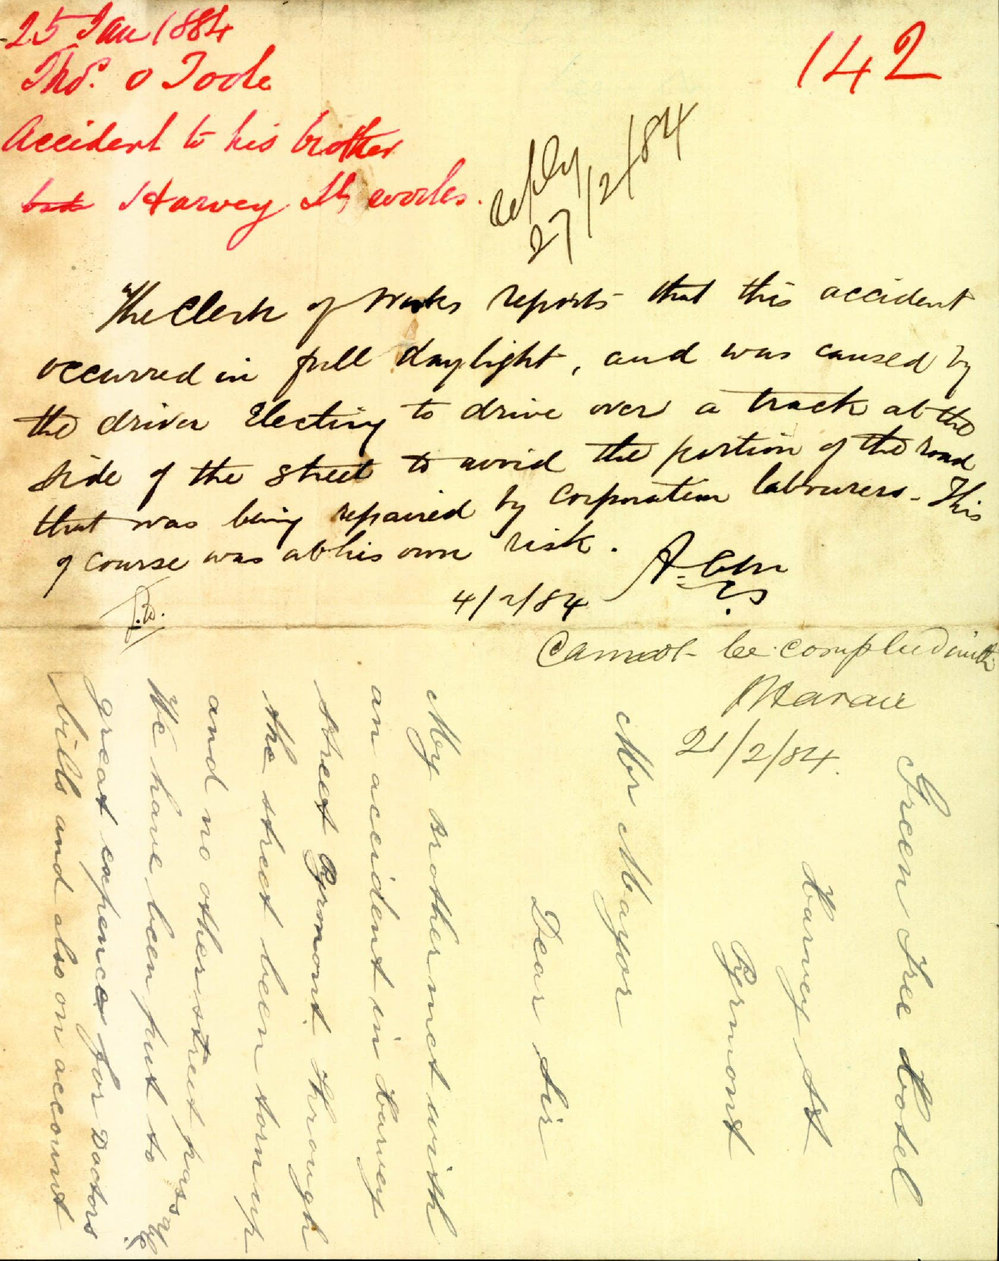 25 Jan 1884
Thos. O Toole
Accident to his brother
Harvey St, works.
142
reply
27/2/84
The Clerk of Works reports that this accident
occurred in full daylight, and was caused by
the driver Electing to drive over a track at the
side of the street to avoid the portion of the road
that was being repaired by Corporation labourers. This
of course was at his own risk.
4/2/84
Cannot be complied with
21/2/84.
Green Tree Hotel
Harvey St
Pyrmont
Mr Mayor
Dear Sir
My Brother met with
an accident in Harvey
street Pyrmont through
the street been torn up
and no other street passable
We have been put to
great expences for Doctors
bills and also on account